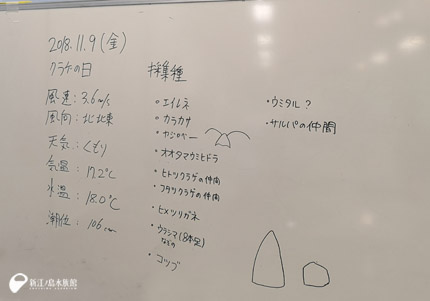 2018.11.9(金)
クラゲの日
風速:3.6m/s
風向:北北東
天気:くもり
気温:17.2℃
水温:18.0℃
潮位:106cm
採集種
・エイレネ
・カラカサ
・ヤジロベー
・オオタマウミヒドラ
・ヒトツクラゲの仲間
・フタツクラゲの仲間
・ヒメツリガネ
・ウラシマ(8本足)
などの
・コップ
・ウミタル?
・サルパの仲間
新江ノ島水族館